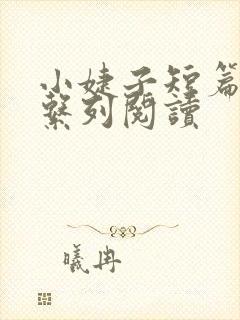 小婕子短篇
繫列閱讀
曦冉